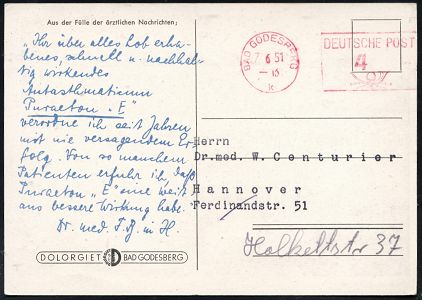 Aus der Fülle der ärztlichen Nachrichten;
„Ihr über alles lob erha-
benes, schnell u. nachhal-
tig wirkendes
Antasthmaticum
Puraeton „E"
verordne ich seit Jahren
mit nie versagendem Er-
folg. Von so manchem
Patienten erfuhr ich, daß
Puraeton „E" eine weit-
aus bessere Wirkung habe.
Dr. med. F. B. in H.
DOLORGIET BAD GODESBERG
BAD GODESBERG
7. 6 51
k
DEUTSCHE POST
4
Herrn
Dr.med. W. Centurier
Hannover
Ferdinandstr. 51
Holkettstr 37